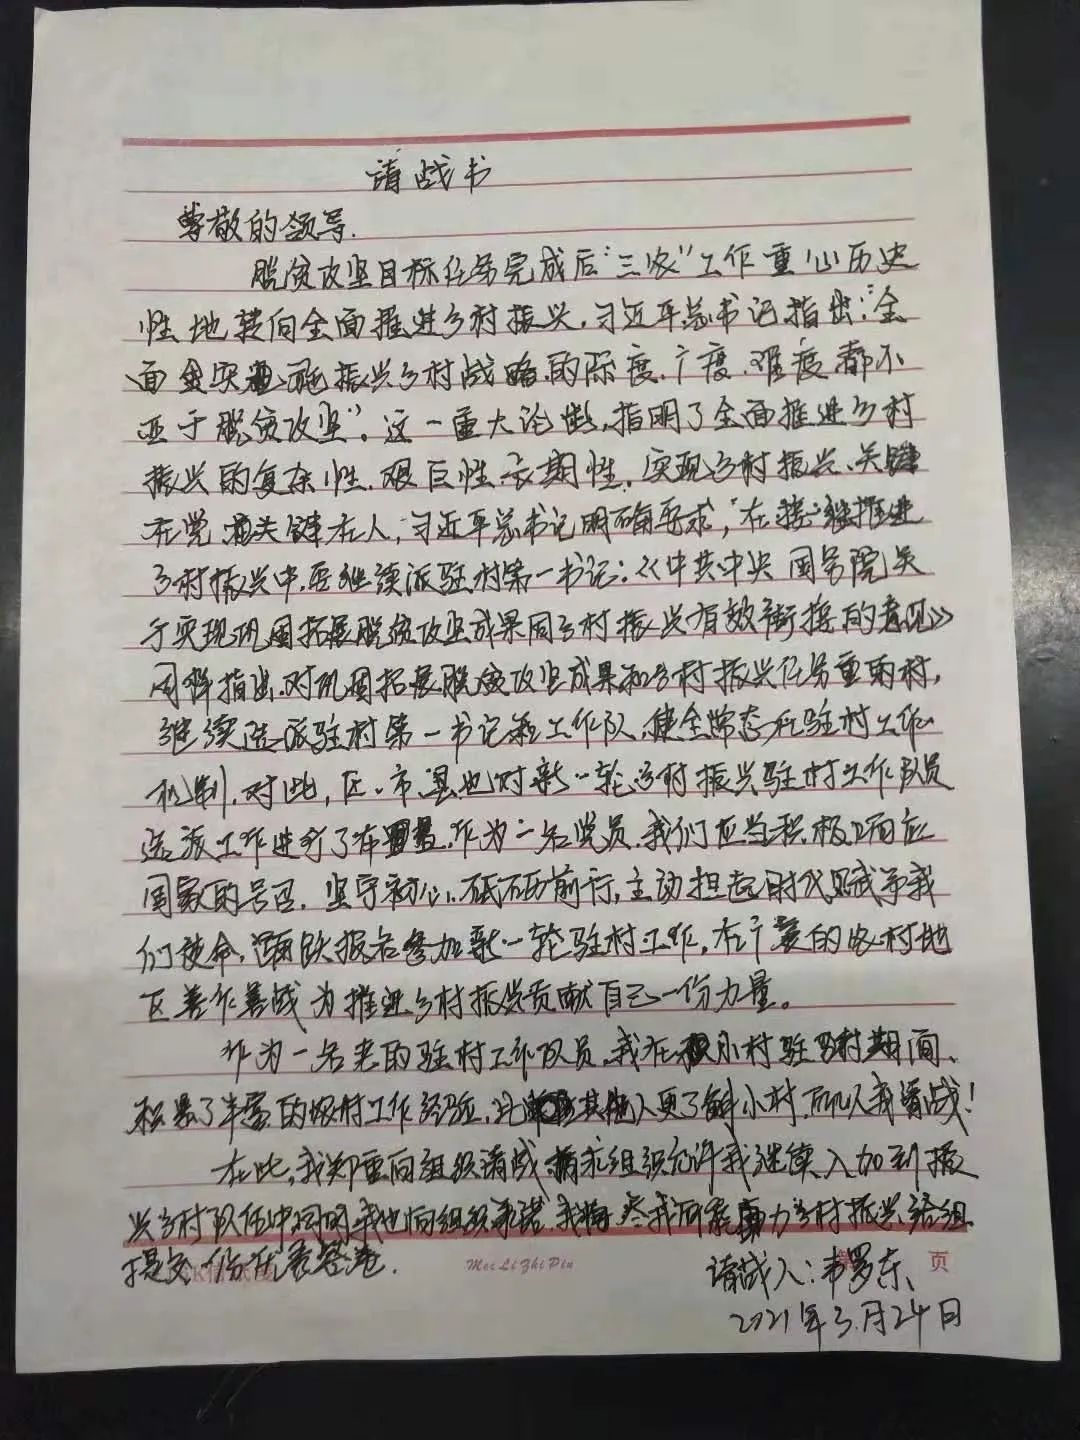 请战书
尊敬的领导.
脱贫攻坚目标任务完成后"三农"工作重心历史
性地转向全面推进乡村振兴,习近平总书记指出:"全
面实施振兴乡村战略的深度.广度.难度都不
亚于脱贫攻坚",这一重大论断,指明了全面推进乡村
振兴的复杂性.艰巨性长期性,实现乡村振兴、关键
在党 关键在人,习近平总书记明确要求,"在接续推进
乡村振兴中,要继续派驻村第一书记;《中共中央 国务院关
于实现巩固拓展脱贫攻坚成果同乡村振兴有效衔接的意见》
同样指出.对巩固拓展脱贫攻坚成果和乡村振兴任务重的村,
继续选派驻村第一书记和工作队,健全常态化驻村工作
机制.对此,区、市、县也对新一轮乡村振兴驻村工作队员
选派工作进行了布置.作为一名党员,我们应当积极响应
国家的号召.坚守初心.砥砺前行,主动担起时代赋予我
们使命,踊跃报名参加新一轮驻村工作,在广袤的农村地
区善作善战为推进乡村振兴贡献自己一份力量。
作为一名老的驻村工作队员,我在小村驻村期间、
积累了丰富的农村工作经验,比其他人更了解小村.所以我请战!
在此,我郑重向组织请战,请求组织允许我继续加入到振
兴乡村队伍中同时我也向组织承诺.我将尽我所能力乡村振兴给组
提交一份优秀答卷.
Mei Li Zhi Pin
页
请战人:韦罗东
2021年3月24日